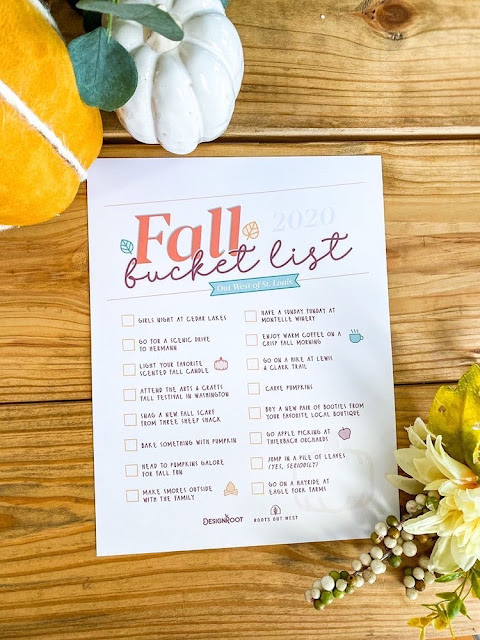 Fall 2020
bucket list
Out West of St. Louis
GIRLS NIGHT AT CEDAR LAKES
GO FOR A SCENIC DRIVE
TO HERMANN
LIGHT YOUR FAVORITE
SCENTED FALL CANDLE
ATTEND THE ARTS & CRAFTS
FALL FESTIVAL IN WASHINGTON
SNAG A NEW FALL SCARF
FROM THREE SHEEP SHACK
BAKE SOMETHING WITH PUMPKIN
HEAD TO PUMPKINS GALORE
FOR FALL FUN
MAKE SMORES OUTSIDE
WITH THE FAMILY
HAVE A SUNDAY FUNDAY AT
MONTELLE WINERY
ENJOY WARM COFFEE ON A
CRISP FALL MORNING
GO ON A HIKE AT LEWIS
& CLARK TRAIL
CARVE PUMPKINS
BUY A NEW PAIR OF BOOTIES FROM
YOUR FAVORITE LOCAL BOUTIQUE
GO APPLE PICKING AT
THIERBACH ORCHARDS
JUMP IN A PILE OF LEAVES
(YES, SERIOUSLY!)
GO ON A HAYRIDE AT
EAGLE FORK FARMS
DESIGNROOT
ROOTS OUT WEST